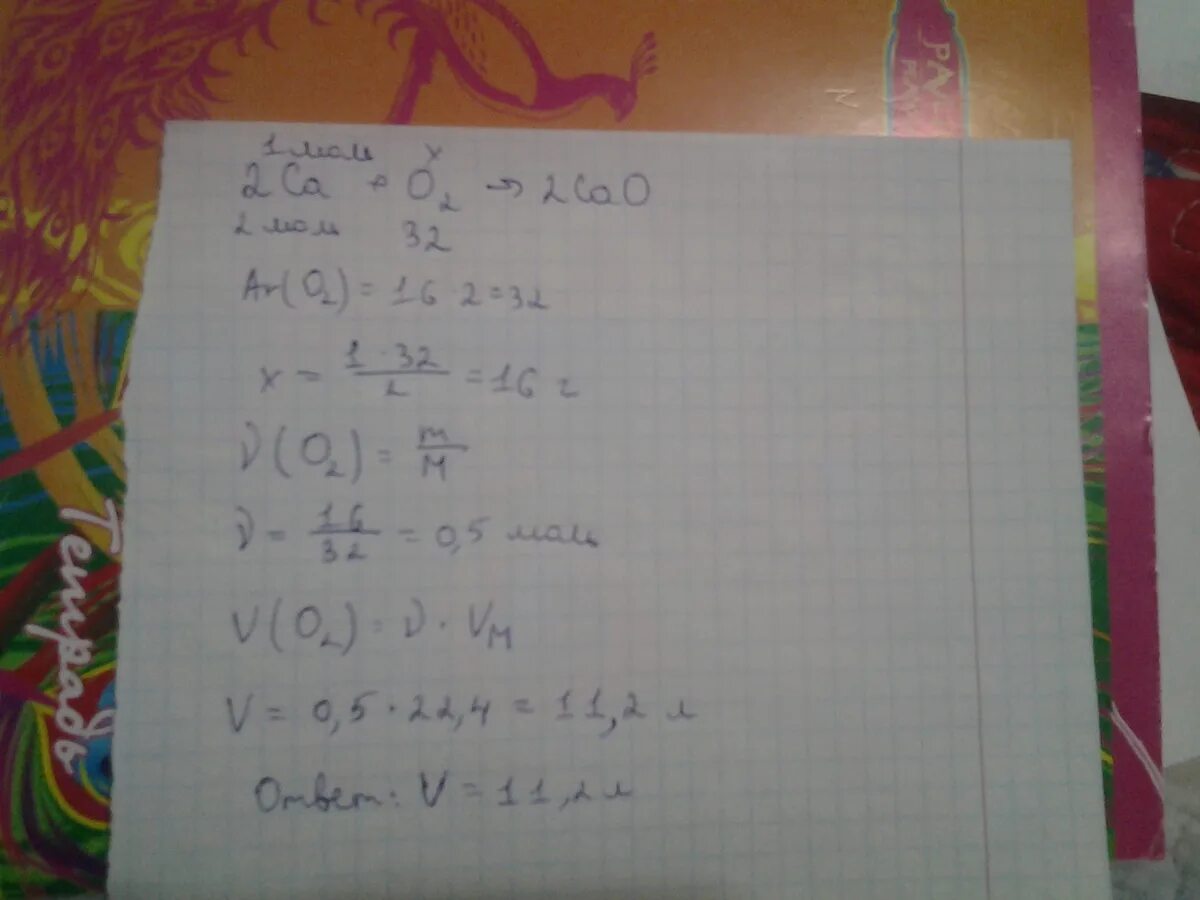 1 моль x
2Ca + O₂ → 2CaO
2 моль 32
Ar(O₂) = 16 2 = 32
x = 1 · 32 / 2 = 16 г
ν(O₂) = m / M
ν = 16 / 32 = 0,5 моль
V(O₂) = ν · Vм
V = 0,5 · 22,4 = 11,2 л
Ответ: V = 11,2 л
Тетрадь